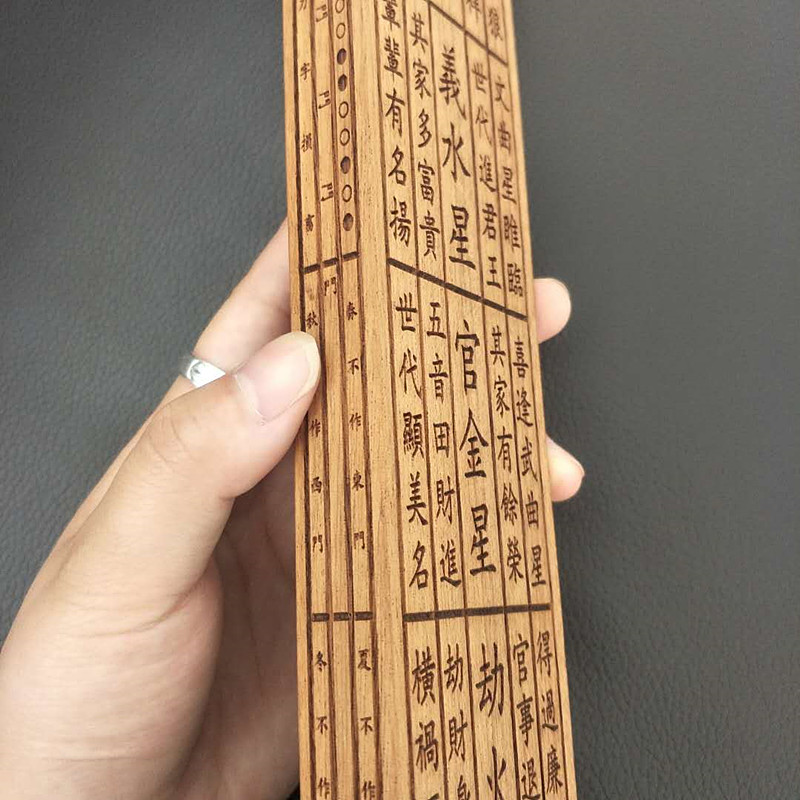 狼
祥
文曲星睢臨
世代進君王
義水星
其家多富貴
輩輩有名揚
喜逢武曲星
其家有餘榮
官金星
五音田財進
世代顯美名
得過廉
官事退
劫火
劫財
橫禍
字損
春不作東門
門
秋作西門
夏不作
冬不作